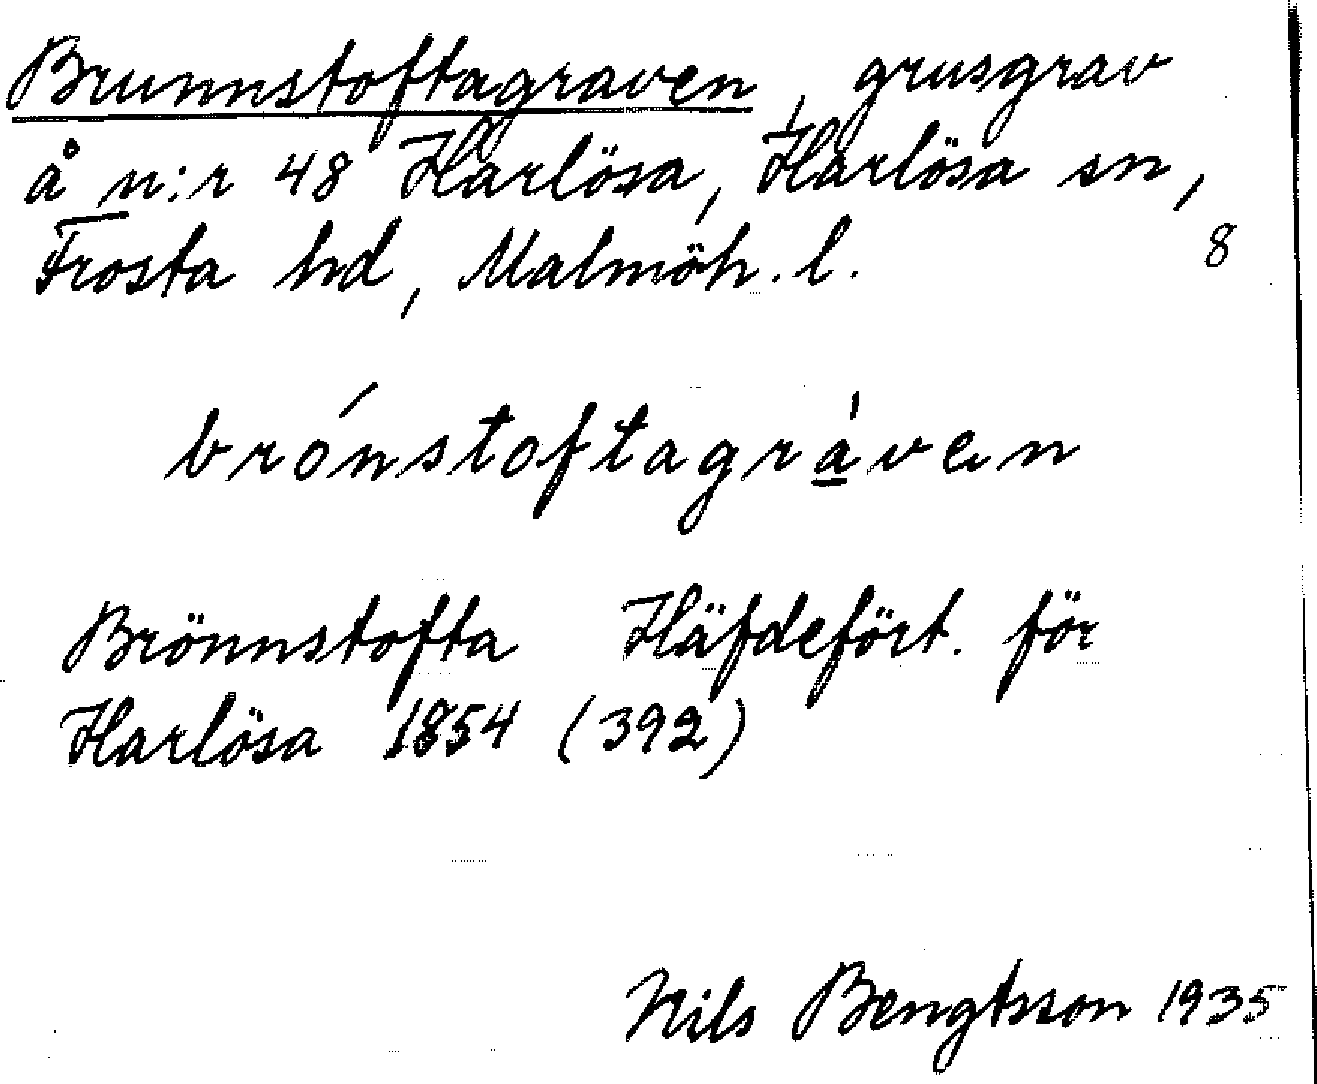 Brunnstoftagraven, grusgrav
å n:r 48 Harlösa, Harlösa sn,
Frosta hd, Malmöh. l.
8
brónstoftagra̲̍ven
Brönnstofta Häfdefört. för
Harlösa 1854 (392)
Nils Bengtsson 1935